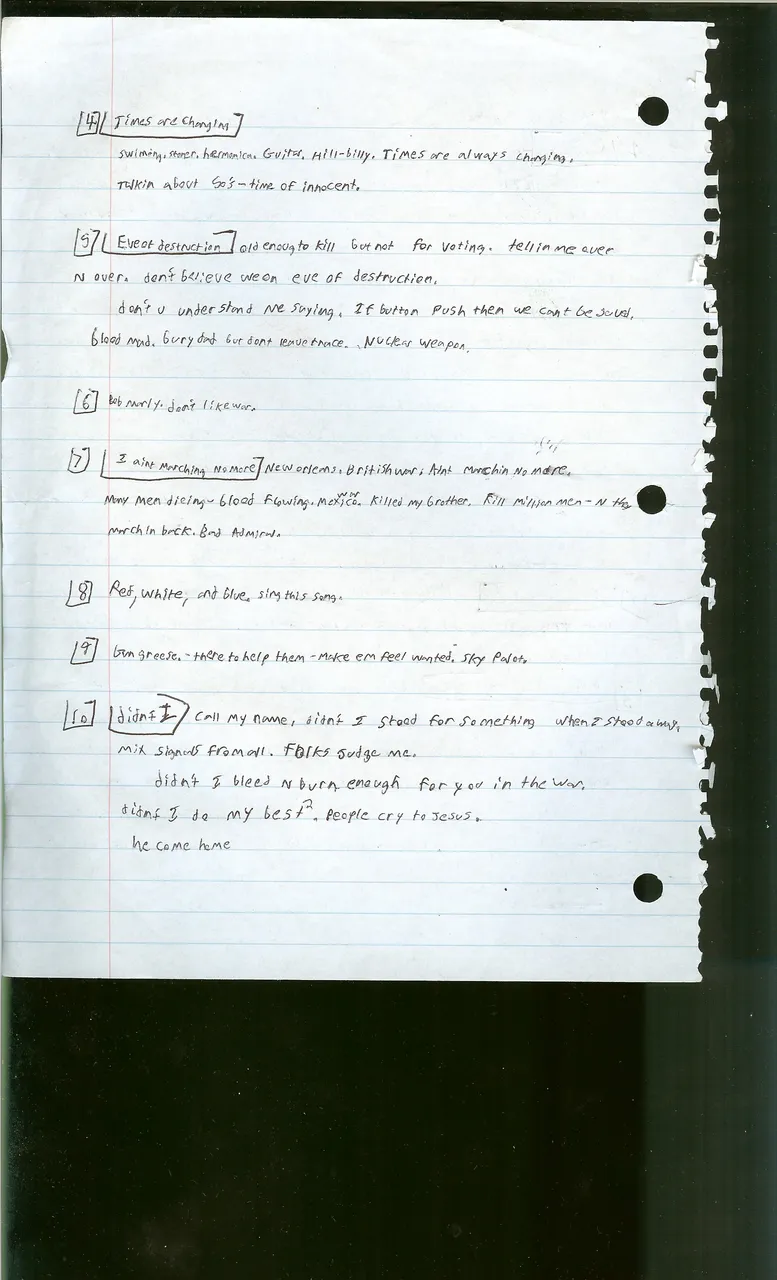 [4] Times are Changing
swiming, stoner, harmonica. Guitar. Hill-billy. Times are always changing.
Talkin about 60's - time of innocent.
[5] Eve of destruction old enoug to kill but not for voting. tellin me over
N over. don't believe we on eve of destruction.
don't u understand me saying. If button push then we cant be saved.
blood mad. bury dad but dont leave trace. Nuclear weapon.
[6] Bob marly. don't like war.
[7] I aint Marching No more New orleans. British war. Aint marchin No more.
Many men dieing - blood flowing. Mexico. Killed my brother. Kill million men - N they
march in back. Bad Admiral.
[8] Red, white, and blue. sing this song.
[9] Gun greese. - there to help them - make em feel wanted. Sky Palot.
[10] didnt I Call my name, didn't I stood for something when I stood away,
mix signals from all. Folks Judge me.
didn't I bleed N burn enough for you in the war.
didnt I do my best? . People cry to Jesus.
he come home